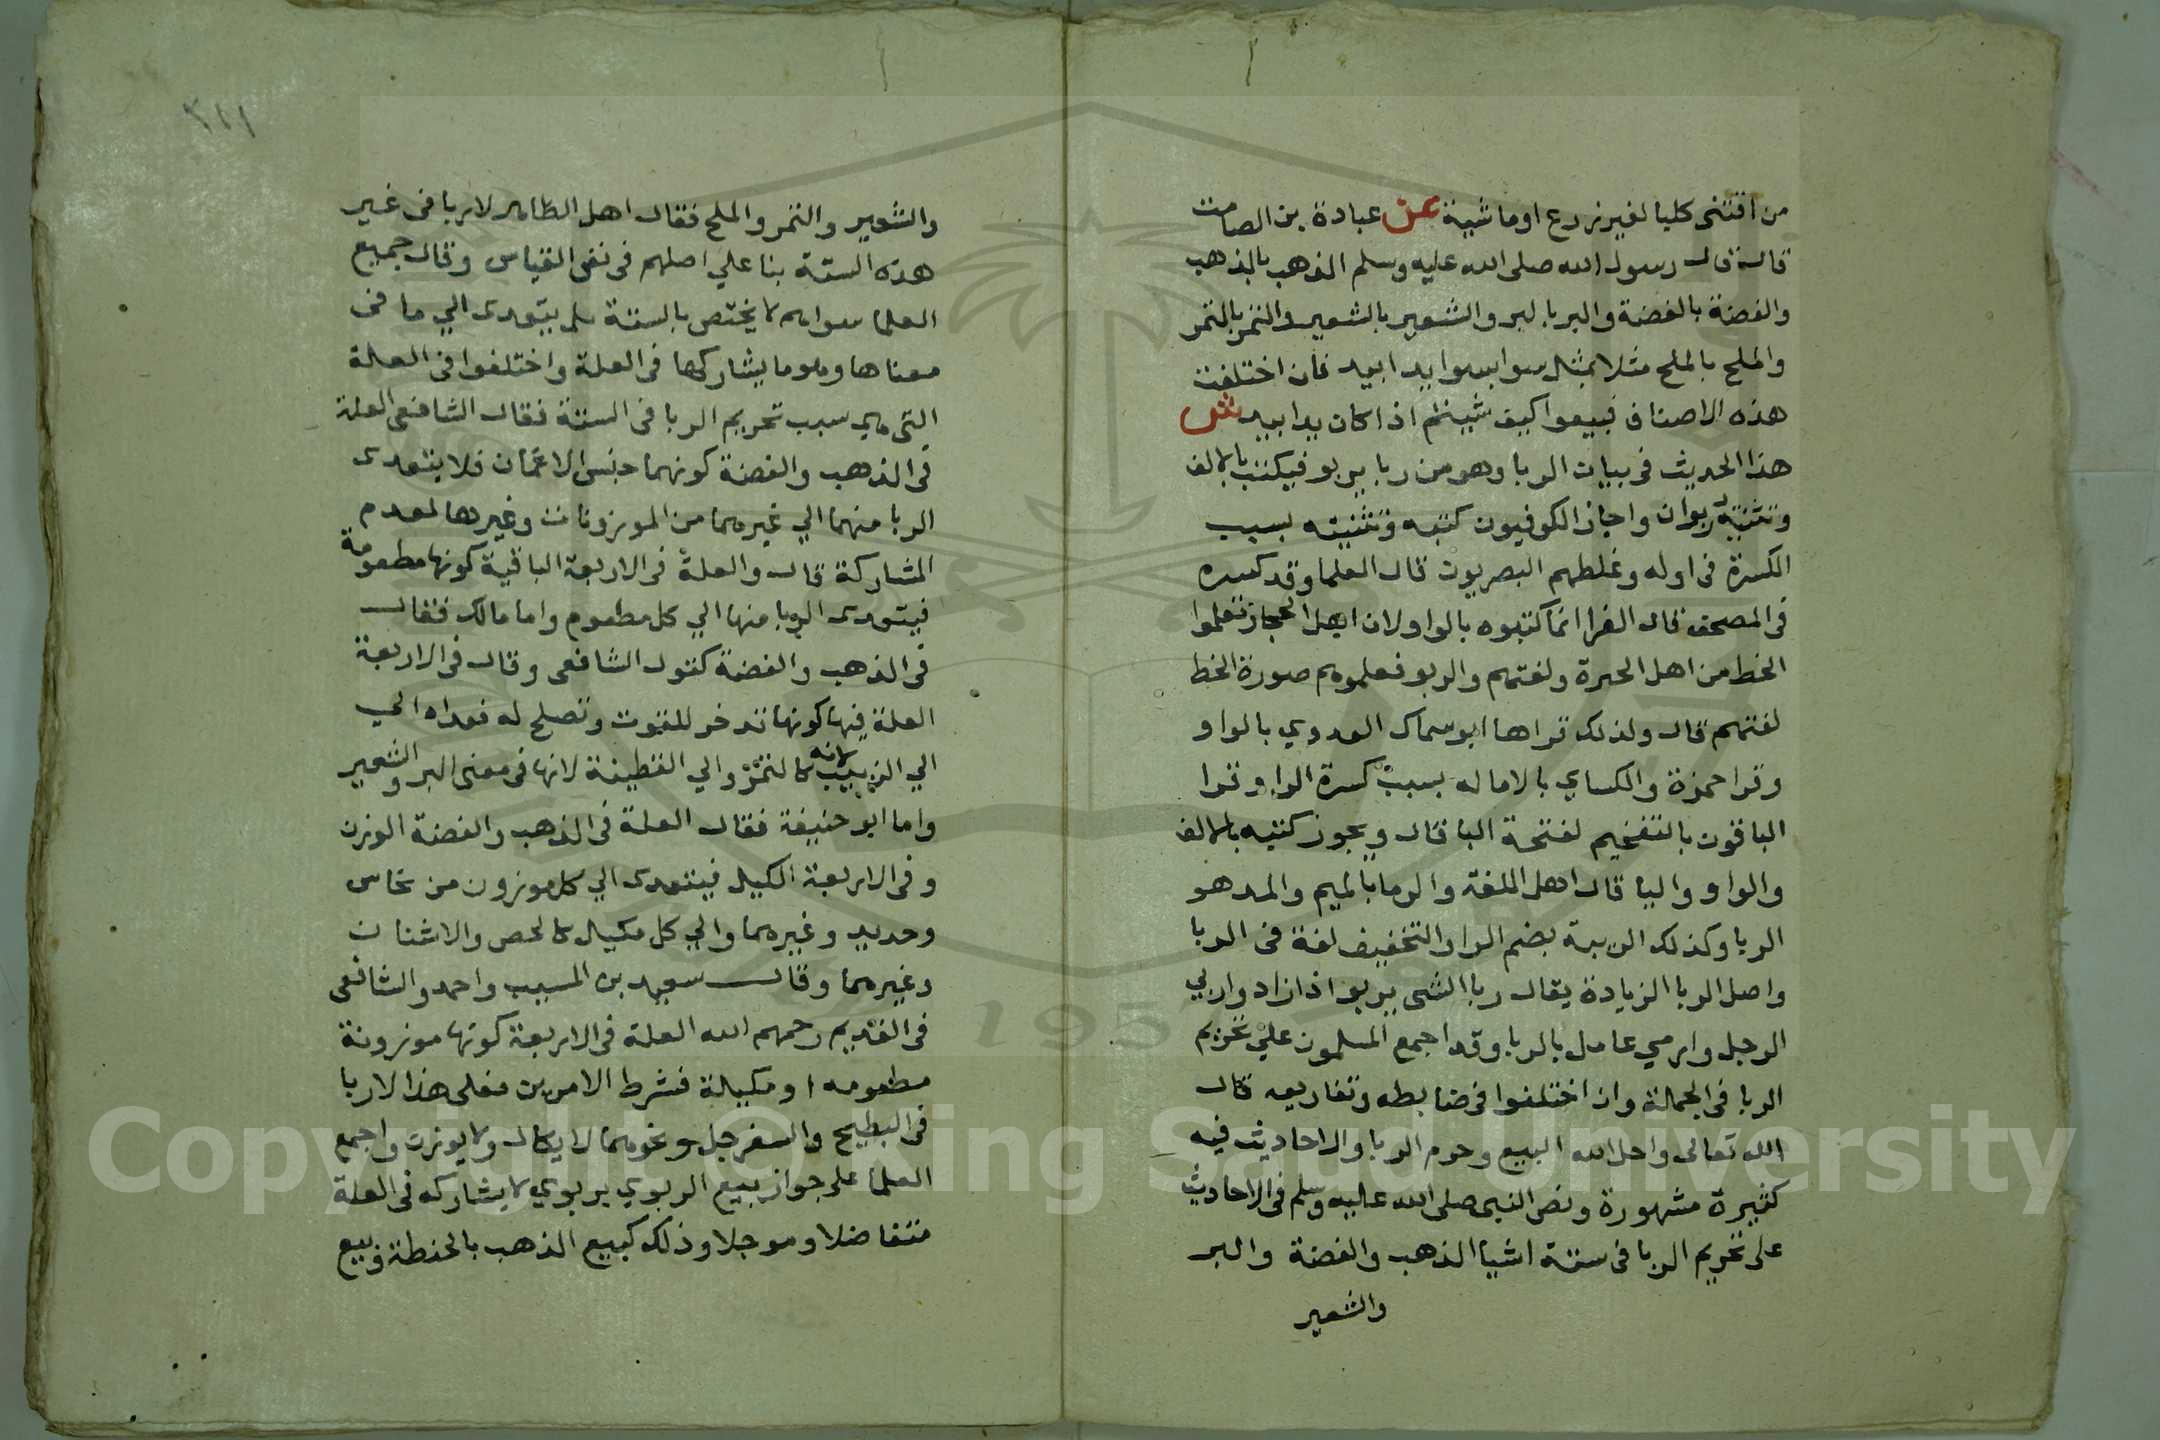 من اقتنى كلبا لغير زرع او ماشية عن عبادة بن الصامت
قال قال رسول الله صلى الله عليه وسلم الذهب بالذهب
والفضة بالفضة والبر بالبر والشعير بالشعير والتمر بالتمر
والملح بالملح مثلا بمثل سوا بسوا يدا بيد فان اختلفت
هذه الاصناف فبيعوا كيف شيتم اذا كان يدا بيد ش
هذا الحديث في بيان الربا وهو من ربا يربو فيكتب بالالف
وتثنيته ربوان واجاز الكوفيون كتبه وتثنيته بسبب
الكسرة في اوله وغلطهم البصريون قال العلما وقد كسره
في المصحف قال الفرا انما كتبوه بالواو لان اهل الحجاز تعلموا
الخط من اهل الحيرة ولغتهم والربو فعلموهم صورة الخط
لغتهم قال ولذلك قراها ابو سماك العدوي بالواو
وقرا حمزة والكساي بالاماله بسبب كسرة الرا وقرا
الباقون بالتفخيم لفتحة البا قال ويجوز كتبه بالالف
والواو واليا قال اهل اللغة والرما بالميم والمد هو
الربا وكذلك الربية بضم الرا والتخفيف لغة في الربا
واصل الربا الزيادة يقال ربا الشي يربو اذا زاد واربي
الرجل وارمي عامل بالربا وقد اجمع المسلمون علي تحريم
الربا في الجملة وان اختلفوا في ضابطه وتفاريعه قال
الله تعالى واحل الله البيع وحرم الربا والاحاديث فيه
كثيرة مشهورة ونص النبي صلى الله عليه وسلم في الاحاديث
على تحريم الربا في ستة اشيا الذهب والفضة والبر
والشعير
٣٢١
والشعير والتمر والملح فقال اهل الظاهر لا ربا في غير
هذه الستة بنا علي اصلهم في نفى القياس وقال جميع
العلما سواهم لا يختص بالستة بل يتعدى الي ما في
معناها وهو ما يشاركها في العلة واختلفوا في العلة
التي هي سبب تحريم الربا في الستة فقال الشافعي العلة
في الذهب والفضة كونهما جنس الاثمان فلا يتعدى
الربا منهما الي غيرهما من الموزونات وغيرها لعدم
المشاركة قال والعلة في الاربعة الباقية كونها مطعومة
فيتعدى الربا منها الي كل مطعوم واما مالك فقال
في الذهب والفضة كقول الشافعي وقال في الاربعة
العلة فيها كونها تدخر للقوت وتصلح له فعداه الي
الي الزبيب لانه كالتمر والي القطيفة لانها في معنى البر والشعير
واما ابو حنيفة فقال العلة في الذهب والفضة الوزن
وفي الاربعة الكيل فيتعدى الي كل موزون من نحاس
وحديد وغيرهما والي كل مكيال كالحص والاشنان
وغيرهما وقال سعيد بن المسيب واحمد والشافعي
في القديم رحمهم الله العلة في الاربعة كونها موزونة
مطعومه او مكيلة فشرط الامرين فعلى هذا لا ربا
في البطيح والسفرجل ونحوهما لا يكال ولا يوزن واجمع
العلما على جواز بيع الربوي بربوي لا يشاركه في العلة
متفاضلا وموجلا وذلك كبيع الذهب بالحنطة وبيع
Copyright © King Saud University
1957